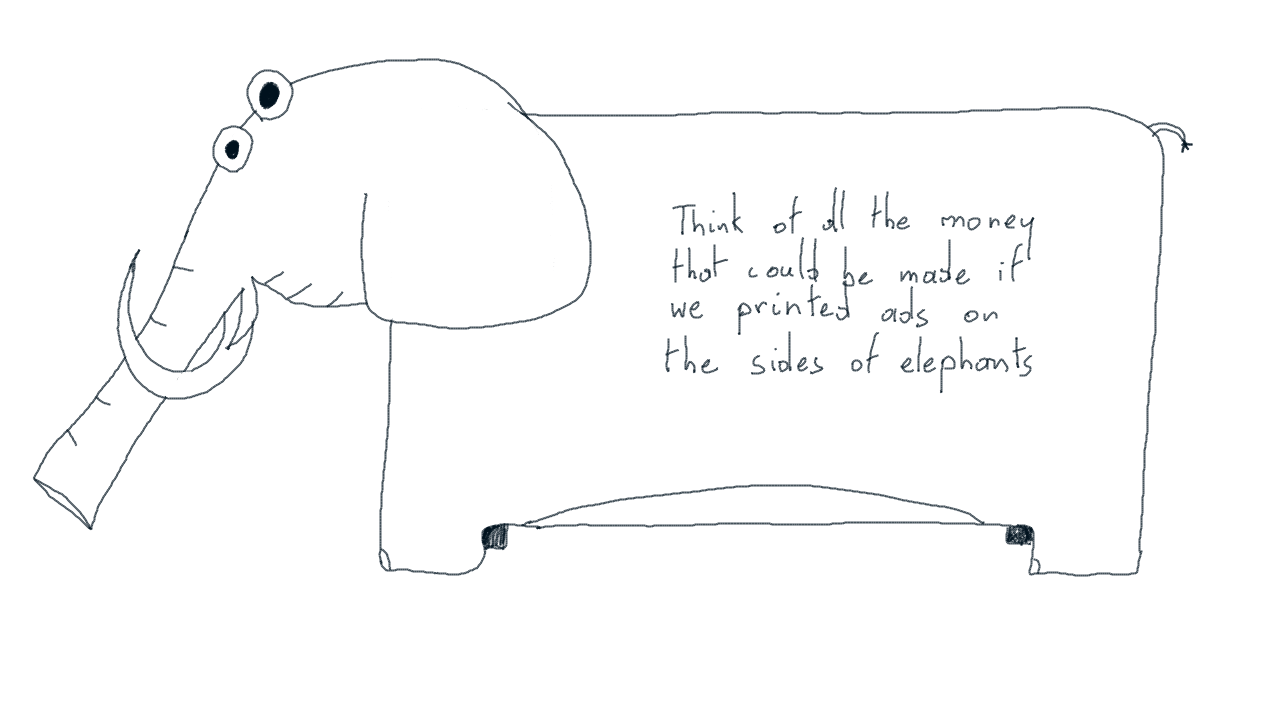 Think of all the money
that could be made if
we printed ads on
the sides of elephants